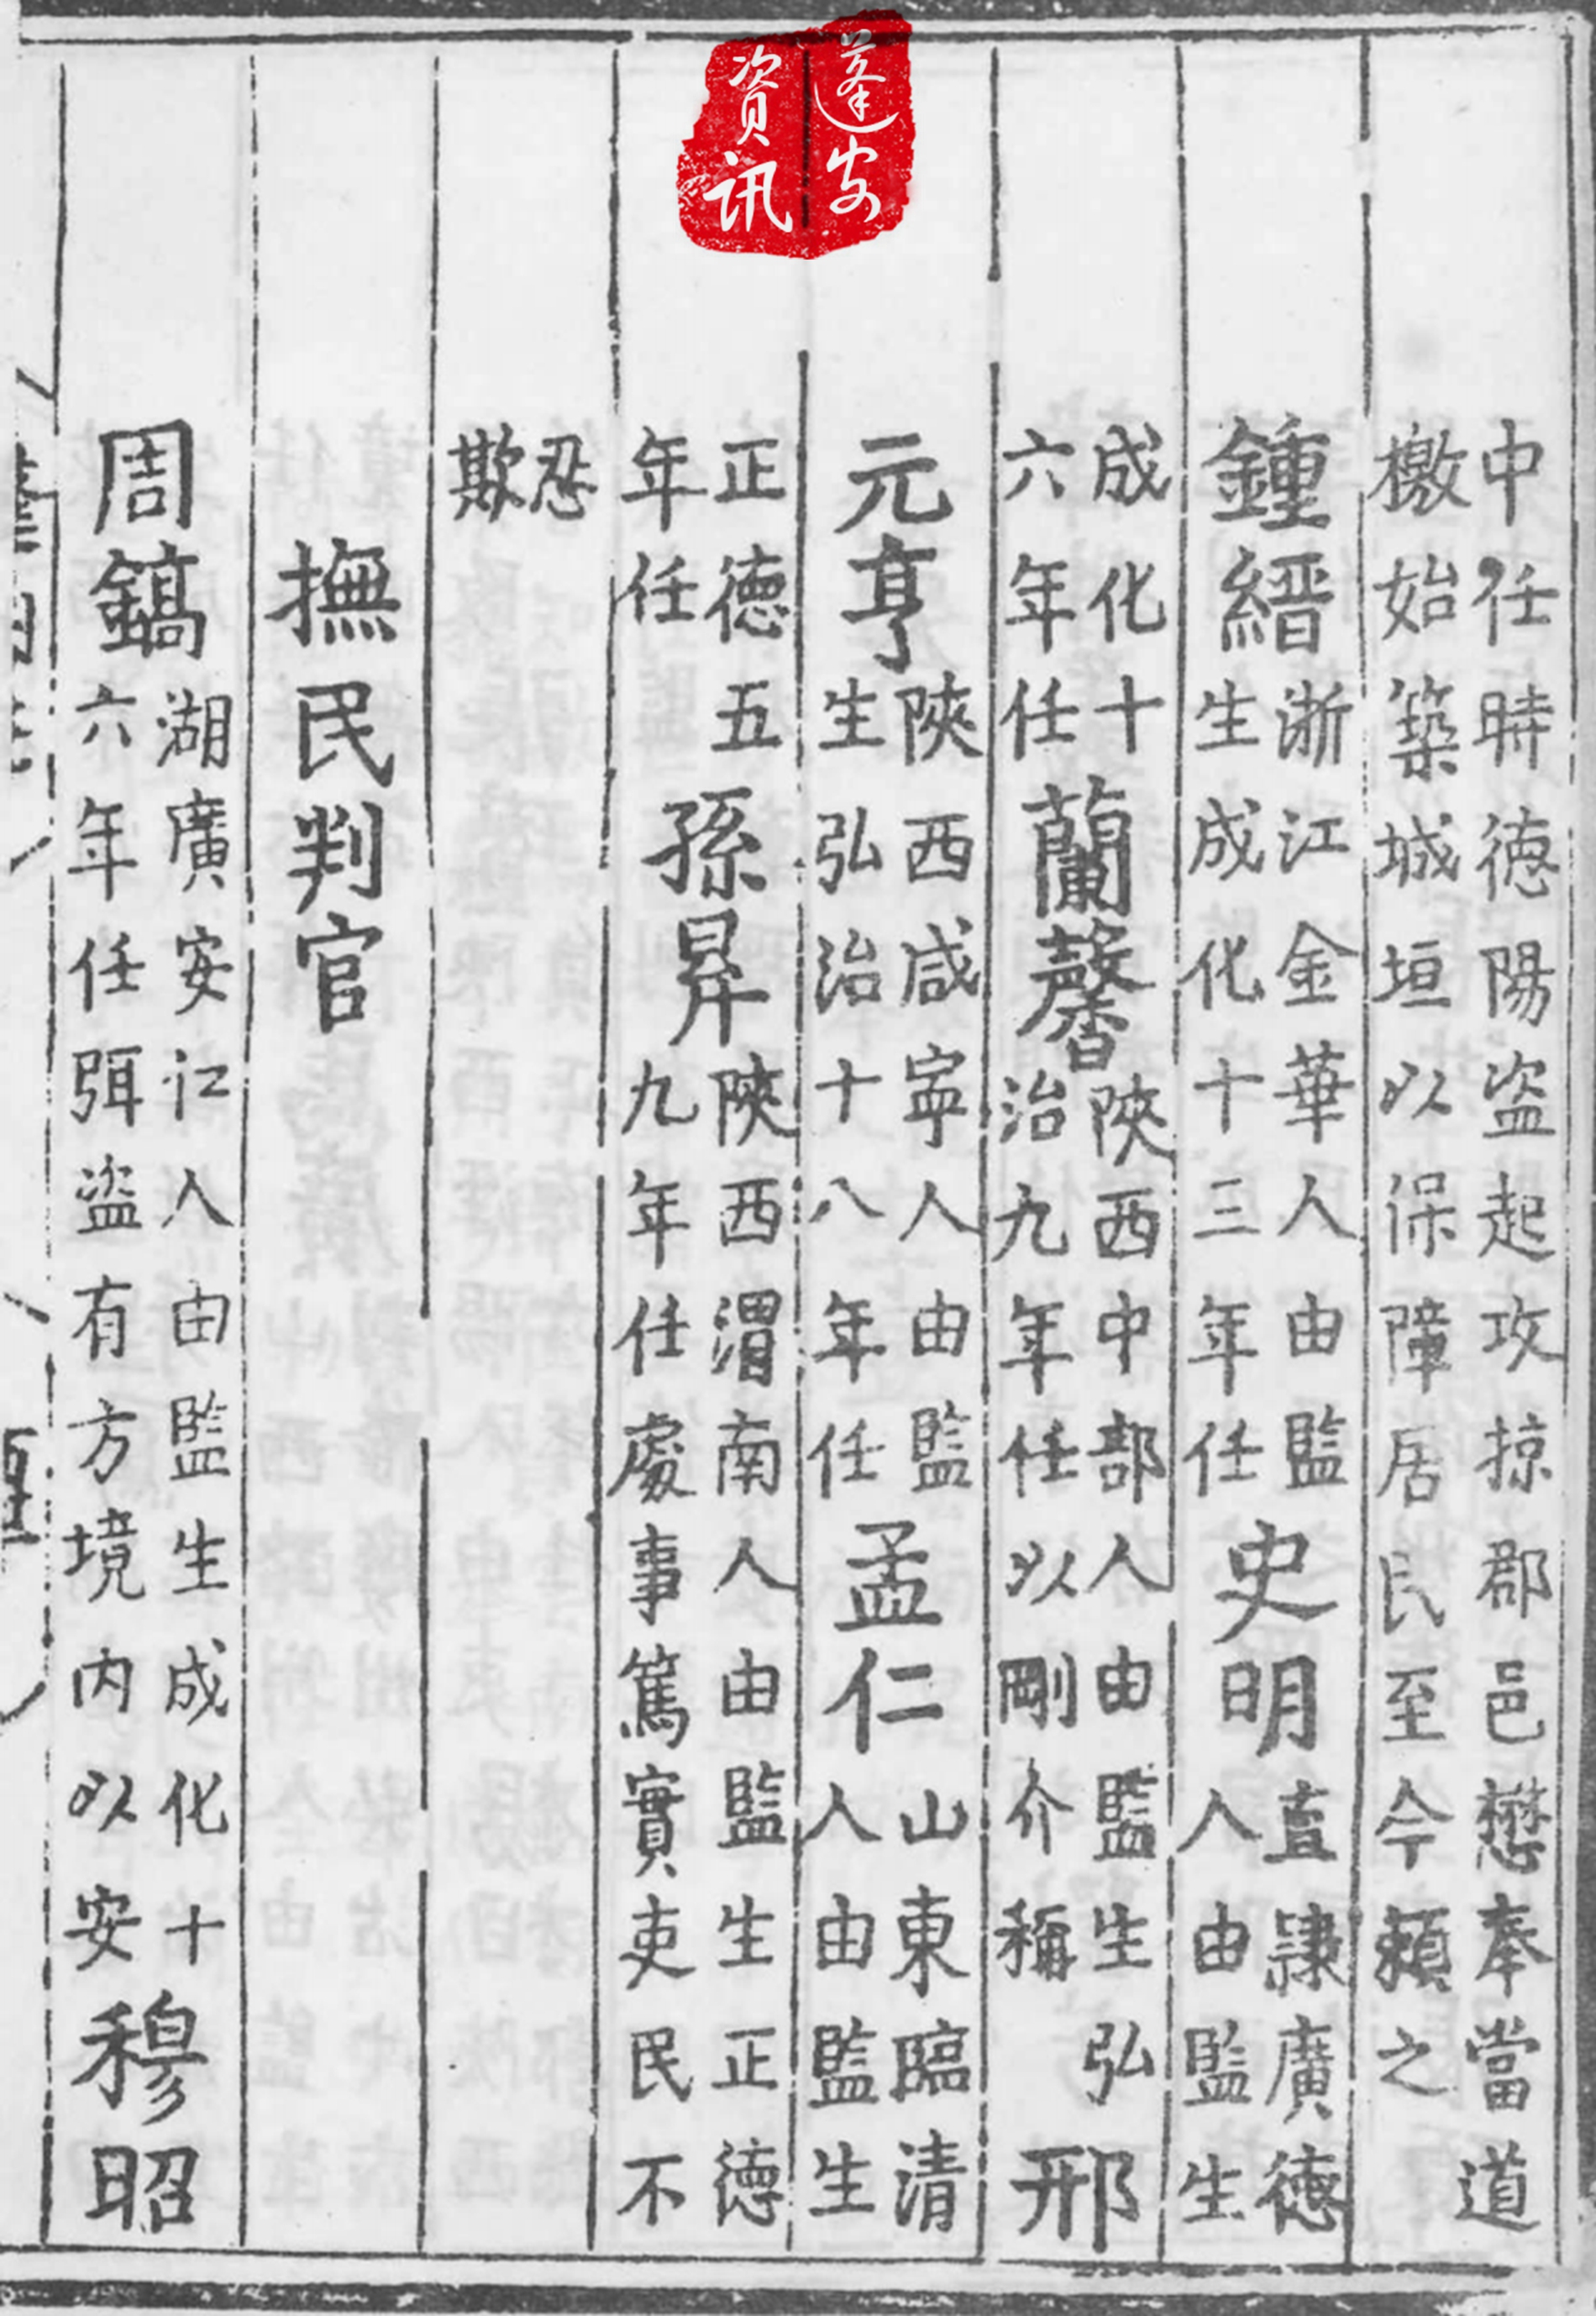 蓬安
資訊
中任時德陽盜起攻掠郡邑懋奉當道
檄始築城垣以保障居民至今賴之
鍾縉
浙江金華人由監
生成化十三年任
史明
直隸廣德
人由監生
成化十
六年任
蘭馨
陝西中部人由監生弘
治九年任以剛介稱
邢
元亨
陝西咸寧人由監
生弘治十八年任
孟仁
山東臨清
人由監生
正德五
年任
孫昇
陝西渭南人由監生正德
九年任處事篤實吏民不
忍
欺
撫民判官
周鎬
湖廣安江人由監生成化十
六年任弭盜有方境内以安
穆昭